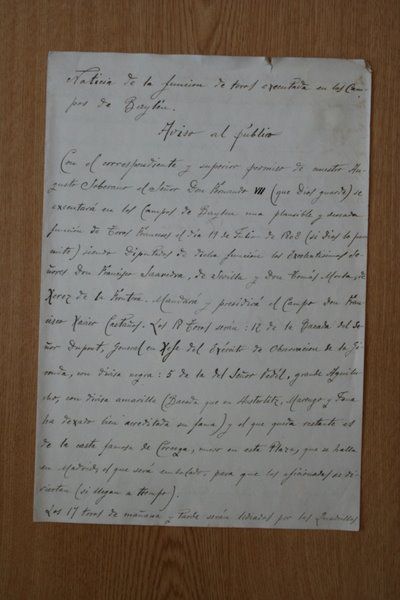 Noticia de la funcion de toros executada en los Cam-
pos de Baylén.
Aviso al público
Con el correspondiente y superior permiso de nuestro Au-
gusto Soberano el Señor Don Fernando VII (que Dios guarde) se
executará en los Campos de Baylen una plausible y deseada
función de Toros Franceses el dia 19 de Julio de 1808 (si Dios lo per-
mite) siendo Diputados de dicha función los Excelentisimos Se-
ñores Don Francisco Saavedra, de Sevilla y Don Tomás Morla, de
Xerez de la Frontera. Mandará y presidirá el Campo Don Fran-
cisco Xavier Castaños. Los 18 Toros serán: 12 de la Bacada del Se-
ñor Dupont, General en Xefe del Exército de Observacion de la Gi-
ronda, con divisa negra: 5 de la del Señor Vedél, grande Aguilu-
cho, con divisa amarilla (Bacada que en Austerlitz, Marengo y Jena
ha dexado bien acreditada su fama) y el que queda restante es
de la casta famosa de Corcega, nuevo en esta Plaza, que se halla
en Madrid, el que será embolado para que los aficionados se di-
viertan (si llegan a tiempo).
Los 17 toros de mañana y tarde serán lidiados por las Quadrillas